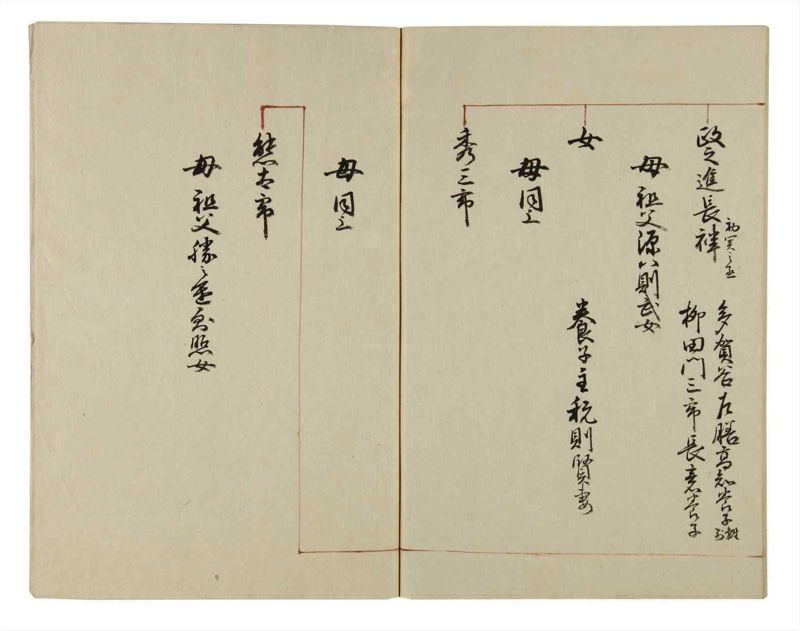 政之進長祥
多賀谷左膳高養子
柳田門三郎長養子
母祖父源八則武女
女
養子主税則賢妻
母同上
秀三郎
母同上
熊吉郎
母祖父勝之進照女